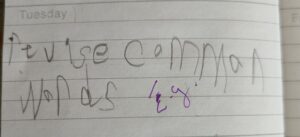 Tuesday
revise common
words e.g.